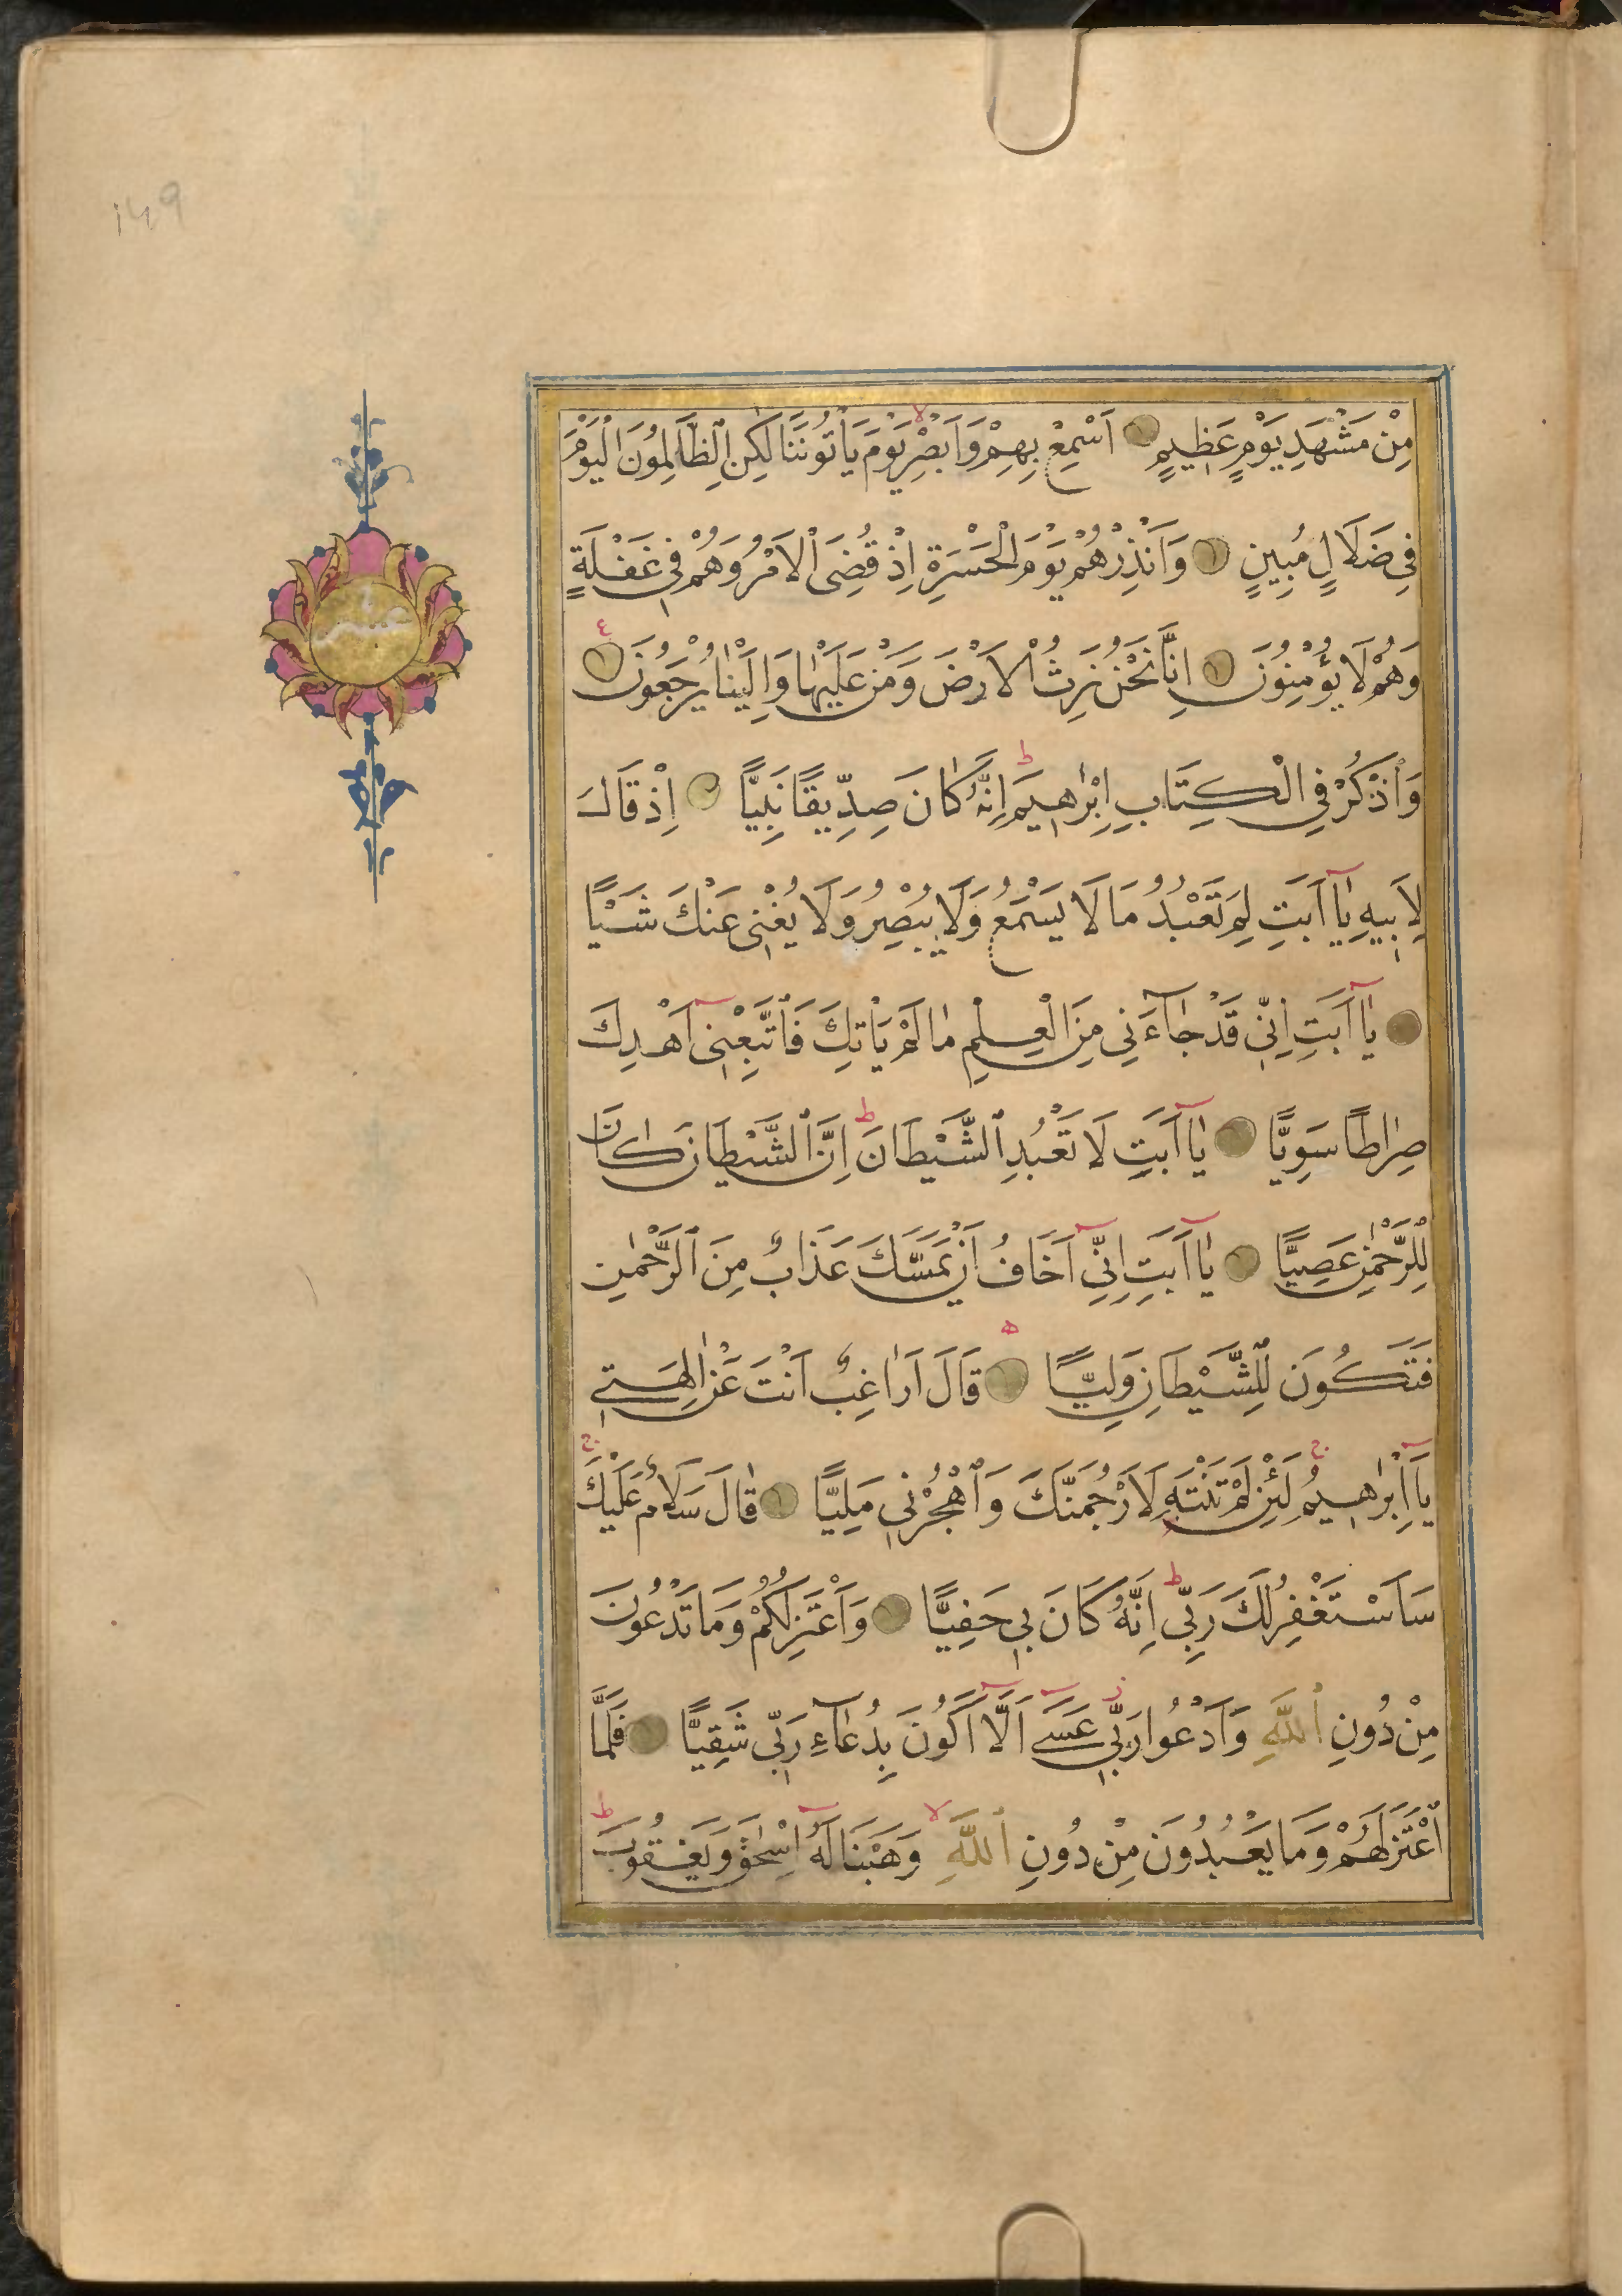 149
مِنْ مَشْهَدِ يَوْمٍ عَظِيمٍ اَسْمِعْ بِهِمْ وَاَبْصِرْ يَوْمَ يَأْتُونَنَا لٰكِنِ ٱلظَّالِمُونَ الْيَوْمَ
فِى ضَلَالٍ مُبِينٍ وَاَنْذِرْهُمْ يَوْمَ الْحَسْرَةِ اِذْ قُضِىَ ٱلْاَمْرُ وَهُمْ فِى غَفْلَةٍ
وَهُمْ لَا يُؤْمِنُونَ اِنَّا نَحْنُ نَرِثُ ٱلْاَرْضَ وَمَنْ عَلَيْهٰا وَاِلَيْنٰا يُرْجَعُونَ
وَٱذْكُرْ فِى الْكِتَابِ اِبْرٰهِيمَ اِنَّهُ كٰانَ صِدِّيقًا نَبِيًّا اِذْ قَالَ
لِاَبِيهِ يٰٓا اَبَتِ لِمَ تَعْبُدُ مَا لَا يَسْمَعُ وَلَا يُبْصِرُ وَلَا يُغْنِى عَنْكَ شَيْـًٔا
يٰٓا اَبَتِ اِنِّى قَدْ جٰٓاءَنِى مِنَ الْعِلْمِ مٰا لَمْ يَأْتِكَ فَٱتَّبِعْنِىٓ اَهْدِكَ
صِرٰاطًا سَوِيًّا يٰٓا اَبَتِ لَا تَعْبُدِ ٱلشَّيْطَانَ اِنَّ ٱلشَّيْطَانَ كٰانَ
لِلرَّحْمٰنِ عَصِيًّا يٰٓا اَبَتِ اِنِّىٓ اَخَافُ اَنْ يَمَسَّكَ عَذَابٌ مِنَ ٱلرَّحْمٰنِ
فَتَكُونَ لِلشَّيْطَانِ وَلِيًّا قَالَ اَرٰاغِبٌ اَنْتَ عَنْ اٰلِهَتِى
يَٓا اِبْرٰهِيمُ لَئِنْ لَمْ تَنْتَهِ لَاَرْجُمَنَّكَ وَٱهْجُرْنِى مَلِيًّا قٰالَ سَلَامٌ عَلَيْكَ
سَاَسْتَغْفِرُ لَكَ رَبِّى اِنَّهُ كَانَ بِى حَفِيًّا وَاَعْتَزِلُكُمْ وَمَا تَدْعُونَ
مِنْ دُونِ ٱللَّهِ وَاَدْعُوا رَبِّى عَسٰٓى اَلَّٓا اَكُونَ بِدُعٰٓاءِ رَبِّى شَقِيًّا فَلَمَّا
ٱعْتَزَلَهُمْ وَمَا يَعْبُدُونَ مِنْ دُونِ ٱللَّهِ وَهَبْنَا لَهُٓ اِسْحٰقَ وَيَعْقُوبَ